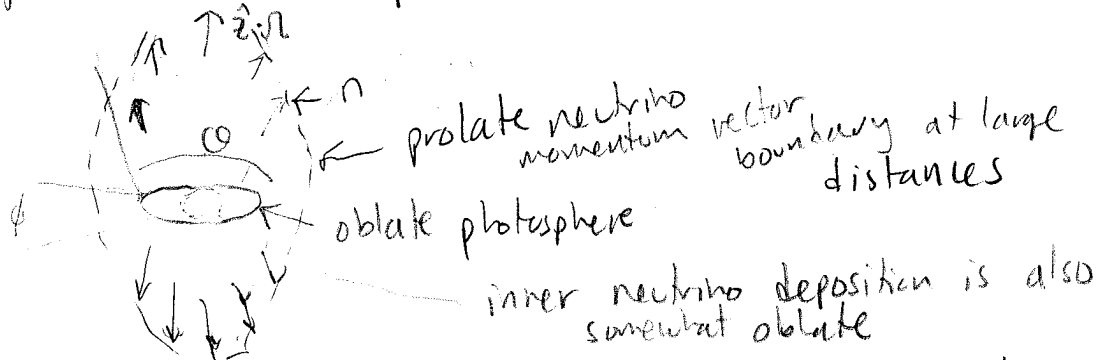 ẑ, Ω
n
prolate neutrino
momentum vector
boundary at large
distances
Θ
ϕ
oblate photosphere
inner neutrino deposition is also
somewhat oblate